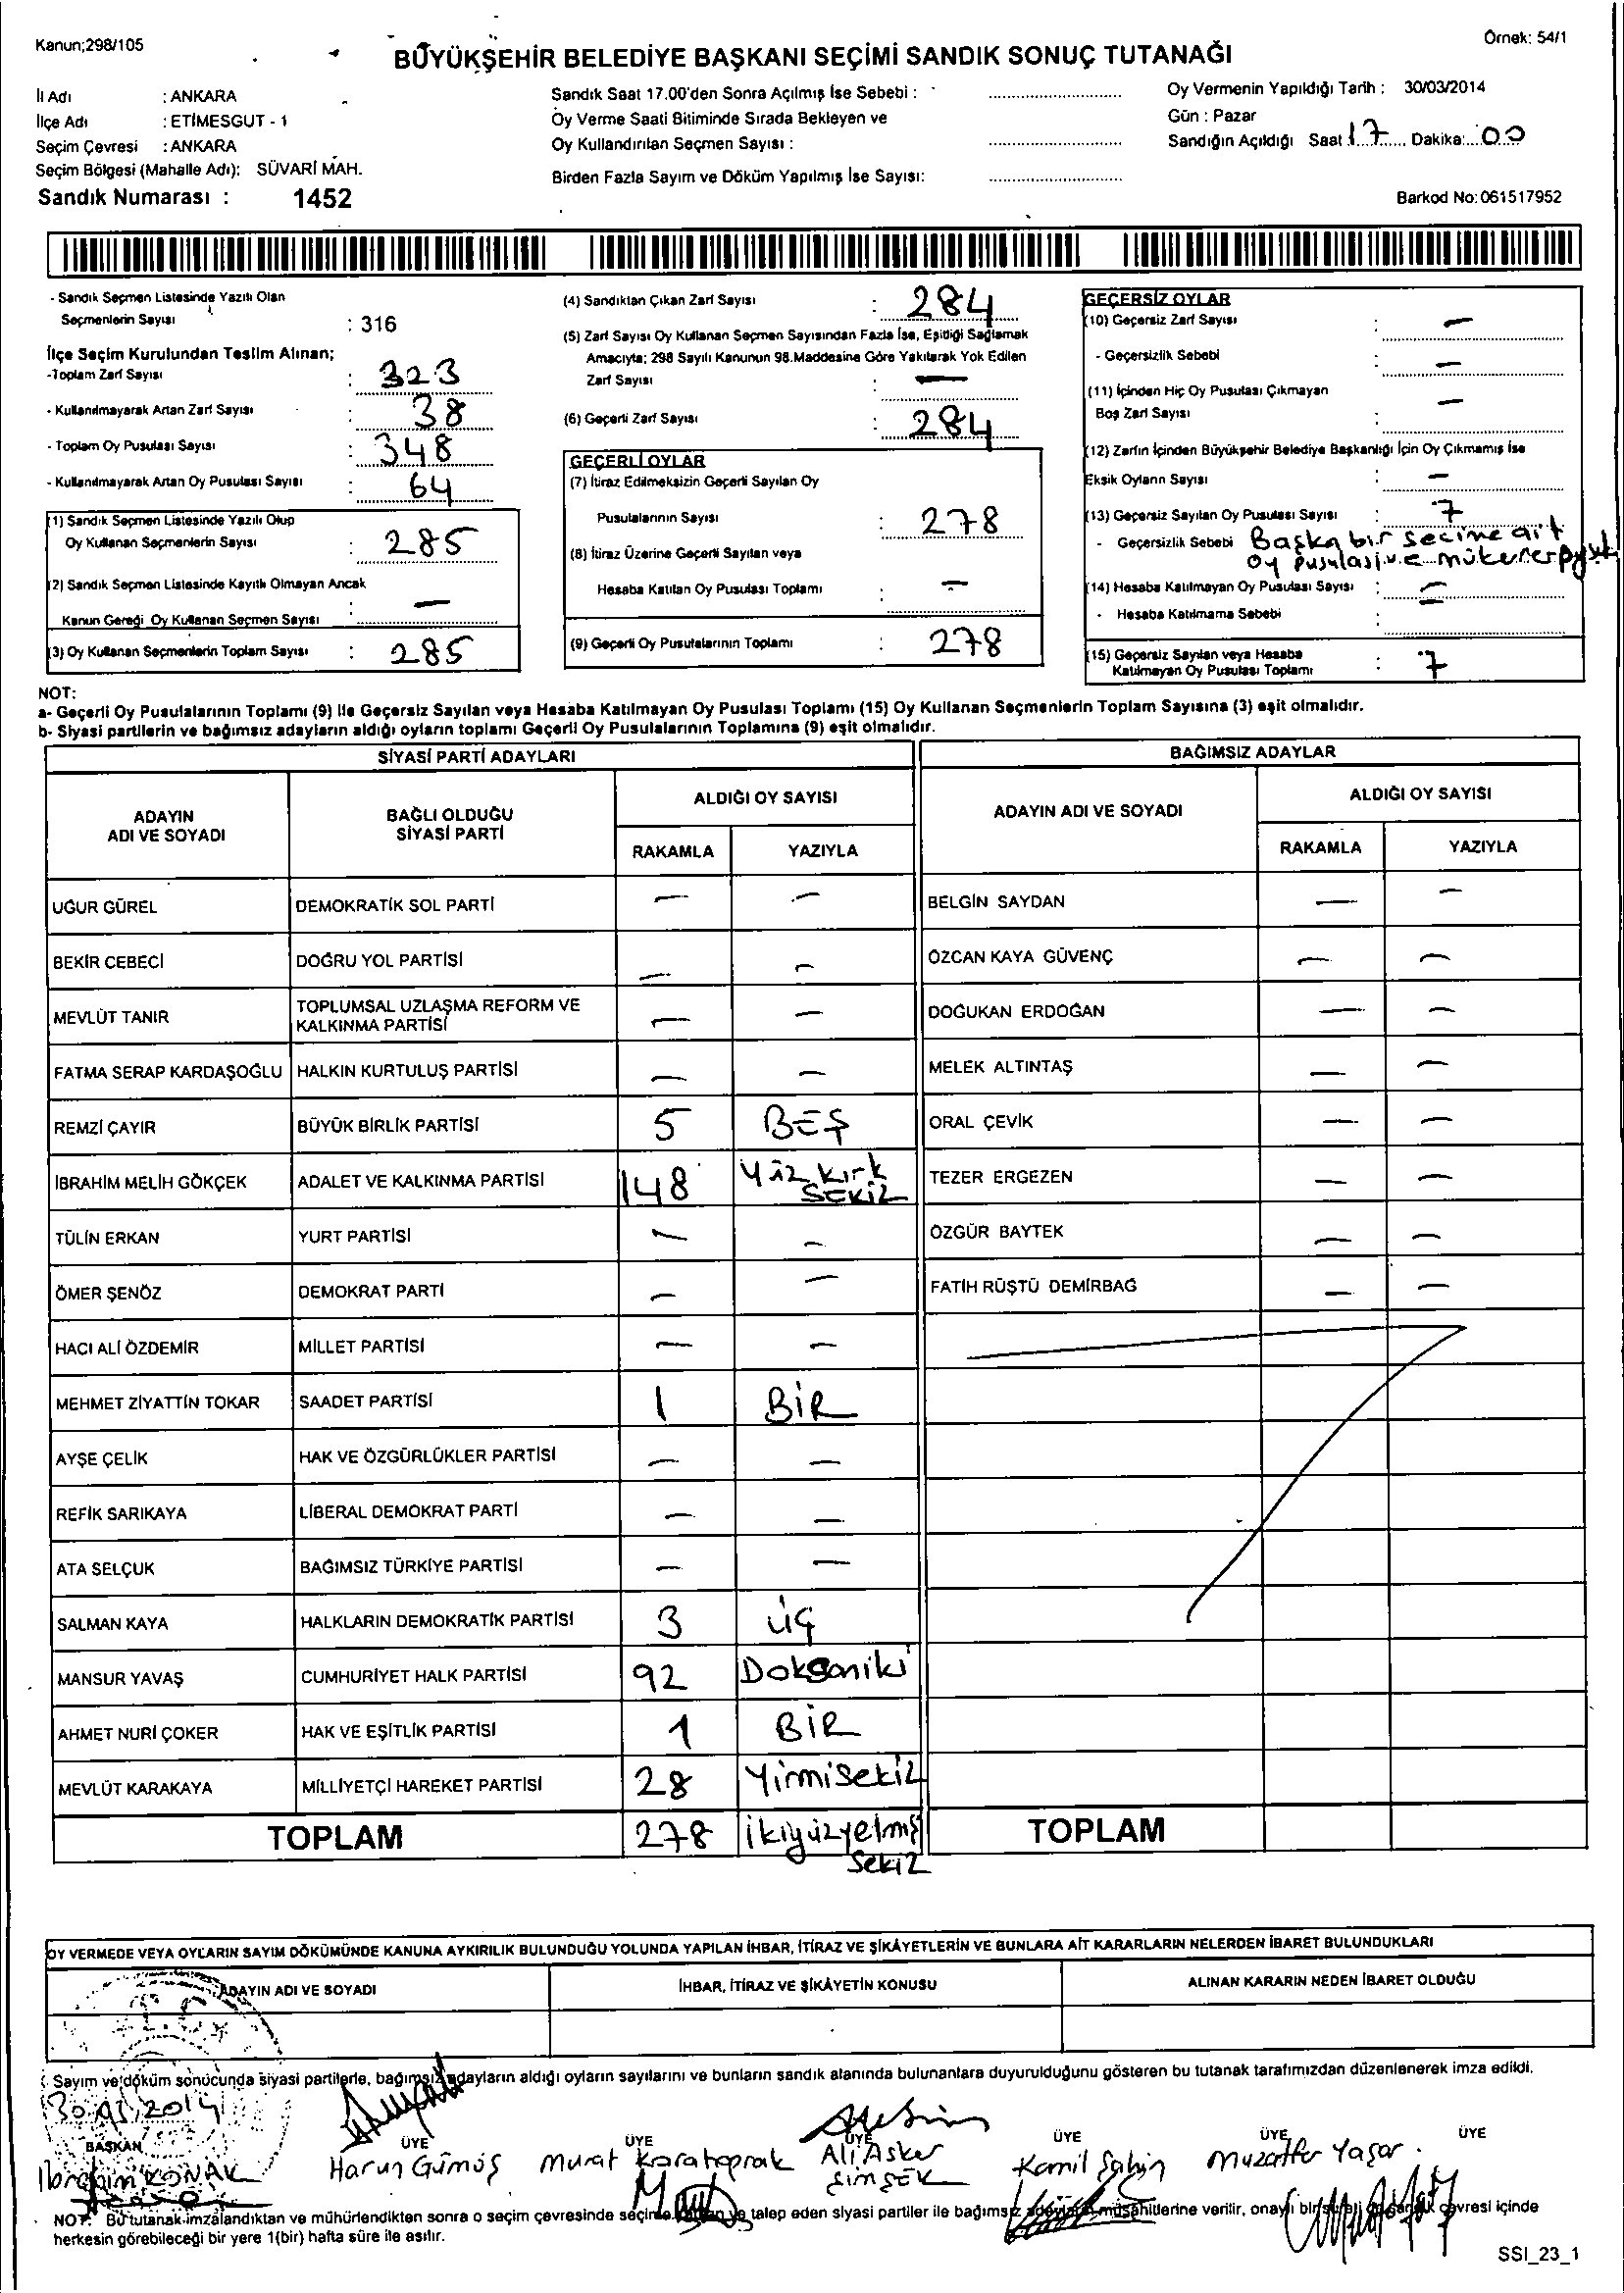 Kanun;298/105
Örnek: 54/1
BÜYÜKŞEHİR BELEDİYE BAŞKANI SEÇİMİ SANDIK SONUÇ TUTANAĞI
İl Adı : ANKARA
İlçe Adı : ETİMESGUT - 1
Seçim Çevresi : ANKARA
Seçim Bölgesi (Mahalle Adı): SÜVARİ MAH.
Sandık Numarası : 1452
Sandık Saat 17.00'den Sonra Açılmış İse Sebebi :
Oy Verme Saati Bitiminde Sırada Bekleyen ve
Oy Kullandırılan Seçmen Sayısı :
Birden Fazla Sayım ve Döküm Yapılmış İse Sayısı:
Oy Vermenin Yapıldığı Tarih : 30/03/2014
Gün : Pazar
Sandığın Açıldığı Saat 17 Dakika: 00
Barkod No:061517952
- Sandık Seçmen Listesinde Yazılı Olan
Seçmenlerin Sayısı : 316
İlçe Seçim Kurulundan Teslim Alınan;
-Toplam Zarf Sayısı : 323
- Kullanılmayarak Artan Zarf Sayısı : 38
- Toplam Oy Pusulası Sayısı : 348
- Kullanılmayarak Artan Oy Pusulası Sayısı : 64
(1) Sandık Seçmen Listesinde Yazılı Olup
Oy Kullanan Seçmenlerin Sayısı : 285
(2) Sandık Seçmen Listesinde Kayıtlı Olmayan Ancak
Kanun Gereği Oy Kullanan Seçmen Sayısı : —
(3) Oy Kullanan Seçmenlerin Toplam Sayısı : 285
(4) Sandıktan Çıkan Zarf Sayısı : 284
(5) Zarf Sayısı Oy Kullanan Seçmen Sayısından Fazla İse, Eşitliği Sağlamak
Amacıyla; 298 Sayılı Kanunun 98.Maddesine Göre Yakılarak Yok Edilen
Zarf Sayısı : —
(6) Geçerli Zarf Sayısı : 284
GEÇERLİ OYLAR
(7) İtiraz Edilmeksizin Geçerli Sayılan Oy
Pusulalarının Sayısı : 278
(8) İtiraz Üzerine Geçerli Sayılan veya
Hesaba Katılan Oy Pusulası Toplamı : —
(9) Geçerli Oy Pusulalarının Toplamı : 278
GEÇERSİZ OYLAR
(10) Geçersiz Zarf Sayısı : —
- Geçersizlik Sebebi : —
(11) İçinden Hiç Oy Pusulası Çıkmayan
Boş Zarf Sayısı : —
(12) Zarfın İçinden Büyükşehir Belediye Başkanlığı İçin Oy Çıkmamış İse
Eksik Oyların Sayısı : —
(13) Geçersiz Sayılan Oy Pusulası Sayısı : 7
- Geçersizlik Sebebi Başka bir seçime ait
oy pusulası ve mükerrer
(14) Hesaba Katılmayan Oy Pusulası Sayısı : —
- Hesaba Katılmama Sebebi : —
(15) Geçersiz Sayılan veya Hesaba
Katılmayan Oy Pusulası Toplamı : 7
NOT:
a- Geçerli Oy Pusulalarının Toplamı (9) ile Geçersiz Sayılan veya Hesaba Katılmayan Oy Pusulası Toplamı (15) Oy Kullanan Seçmenlerin Toplam Sayısına (3) eşit olmalıdır.
b- Siyasi partilerin ve bağımsız adayların aldığı oyların toplamı Geçerli Oy Pusulalarının Toplamına (9) eşit olmalıdır.
SİYASİ PARTİ ADAYLARI
ADAYIN ADI VE SOYADI
BAĞLI OLDUĞU SİYASİ PARTİ
ALDIĞI OY SAYISI
RAKAMLA YAZIYLA
UĞUR GÜREL DEMOKRATİK SOL PARTİ — —
BEKİR CEBECİ DOĞRU YOL PARTİSİ — —
MEVLÜT TANIR TOPLUMSAL UZLAŞMA REFORM VE KALKINMA PARTİSİ — —
FATMA SERAP KARDAŞOĞLU HALKIN KURTULUŞ PARTİSİ — —
REMZİ ÇAYIR BÜYÜK BİRLİK PARTİSİ 5 BEŞ
İBRAHİM MELİH GÖKÇEK ADALET VE KALKINMA PARTİSİ 148 Yüz kırk SEKİZ
TÜLİN ERKAN YURT PARTİSİ — —
ÖMER ŞENÖZ DEMOKRAT PARTİ — —
HACI ALİ ÖZDEMİR MİLLET PARTİSİ — —
MEHMET ZİYATTİN TOKAR SAADET PARTİSİ 1 BİR
AYŞE ÇELİK HAK VE ÖZGÜRLÜKLER PARTİSİ — —
REFİK SARIKAYA LİBERAL DEMOKRAT PARTİ — —
ATA SELÇUK BAĞIMSIZ TÜRKİYE PARTİSİ — —
SALMAN KAYA HALKLARIN DEMOKRATİK PARTİSİ 3 ÜÇ
MANSUR YAVAŞ CUMHURİYET HALK PARTİSİ 92 Doksaniki
AHMET NURİ ÇOKER HAK VE EŞİTLİK PARTİSİ 1 BİR
MEVLÜT KARAKAYA MİLLİYETÇİ HAREKET PARTİSİ 28 Yirmisekiz
TOPLAM 278 ikiyüzyetmiş sekiz
BAĞIMSIZ ADAYLAR
ADAYIN ADI VE SOYADI
ALDIĞI OY SAYISI
RAKAMLA YAZIYLA
BELGİN SAYDAN — —
ÖZCAN KAYA GÜVENÇ — —
DOĞUKAN ERDOĞAN — —
MELEK ALTINTAŞ — —
ORAL ÇEVİK — —
TEZER ERGEZEN — —
ÖZGÜR BAYTEK — —
FATİH RÜŞTÜ DEMİRBAĞ — —
TOPLAM
OY VERMEDE VEYA OYLARIN SAYIM DÖKÜMÜNDE KANUNA AYKIRILIK BULUNDUĞU YOLUNDA YAPILAN İHBAR, İTİRAZ VE ŞİKÂYETLERİN VE BUNLARA AİT KARARLARIN NELERDEN İBARET BULUNDUKLARI
ADAYIN ADI VE SOYADI
İHBAR, İTİRAZ VE ŞİKÂYETİN KONUSU
ALINAN KARARIN NEDEN İBARET OLDUĞU
Sayım ve döküm sonucunda siyasi partilerle, bağımsız adayların aldığı oyların sayılarını ve bunların sandık alanında bulunanlara duyurulduğunu gösteren bu tutanak tarafımızdan düzenlenerek imza edildi.
BAŞKAN ÜYE ÜYE ÜYE ÜYE ÜYE ÜYE
İbrahim KONAK Harun Gümüş Murat Karatoprak Ali Asker ŞİMŞEK Kamil Şahin Muzaffer Yaşar
NOT: Bu tutanak imzalandıktan ve mühürlendikten sonra o seçim çevresinde seçime katılan ve talep eden siyasi partiler ile bağımsız adayların müşahitlerine verilir, onaylı bir sureti de sandık çevresi içinde
herkesin görebileceği bir yere 1(bir) hafta süre ile asılır.
SSI_23_1